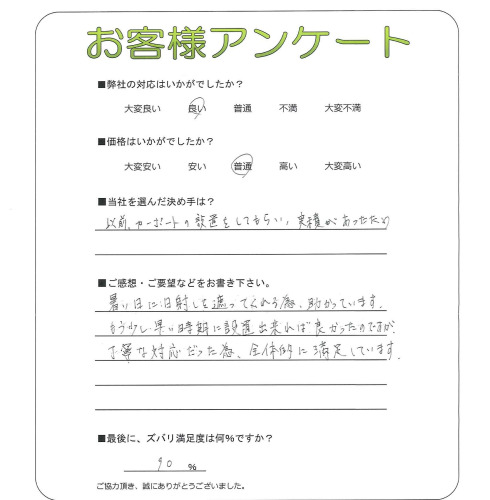 お客様アンケート
■弊社の対応はいかがでしたか？
大変良い 良い 普通 不満 大変不満
■価格はいかがでしたか？
大変安い 安い 普通 高い 大変高い
■当社を選んだ決め手は？
以前、カーポートの設置をしてもらい、実績があったため
■ご感想・ご要望などをお書き下さい。
暑い日に日射しを遮ってくれる為、助かっています。
もう少し早い時期に設置出来れば良かったのですが、
丁寧な対応だった為、全体的に満足しています。
■最後に、ズバリ満足度は何%ですか？
90 %
ご協力頂き、誠にありがとうございました。